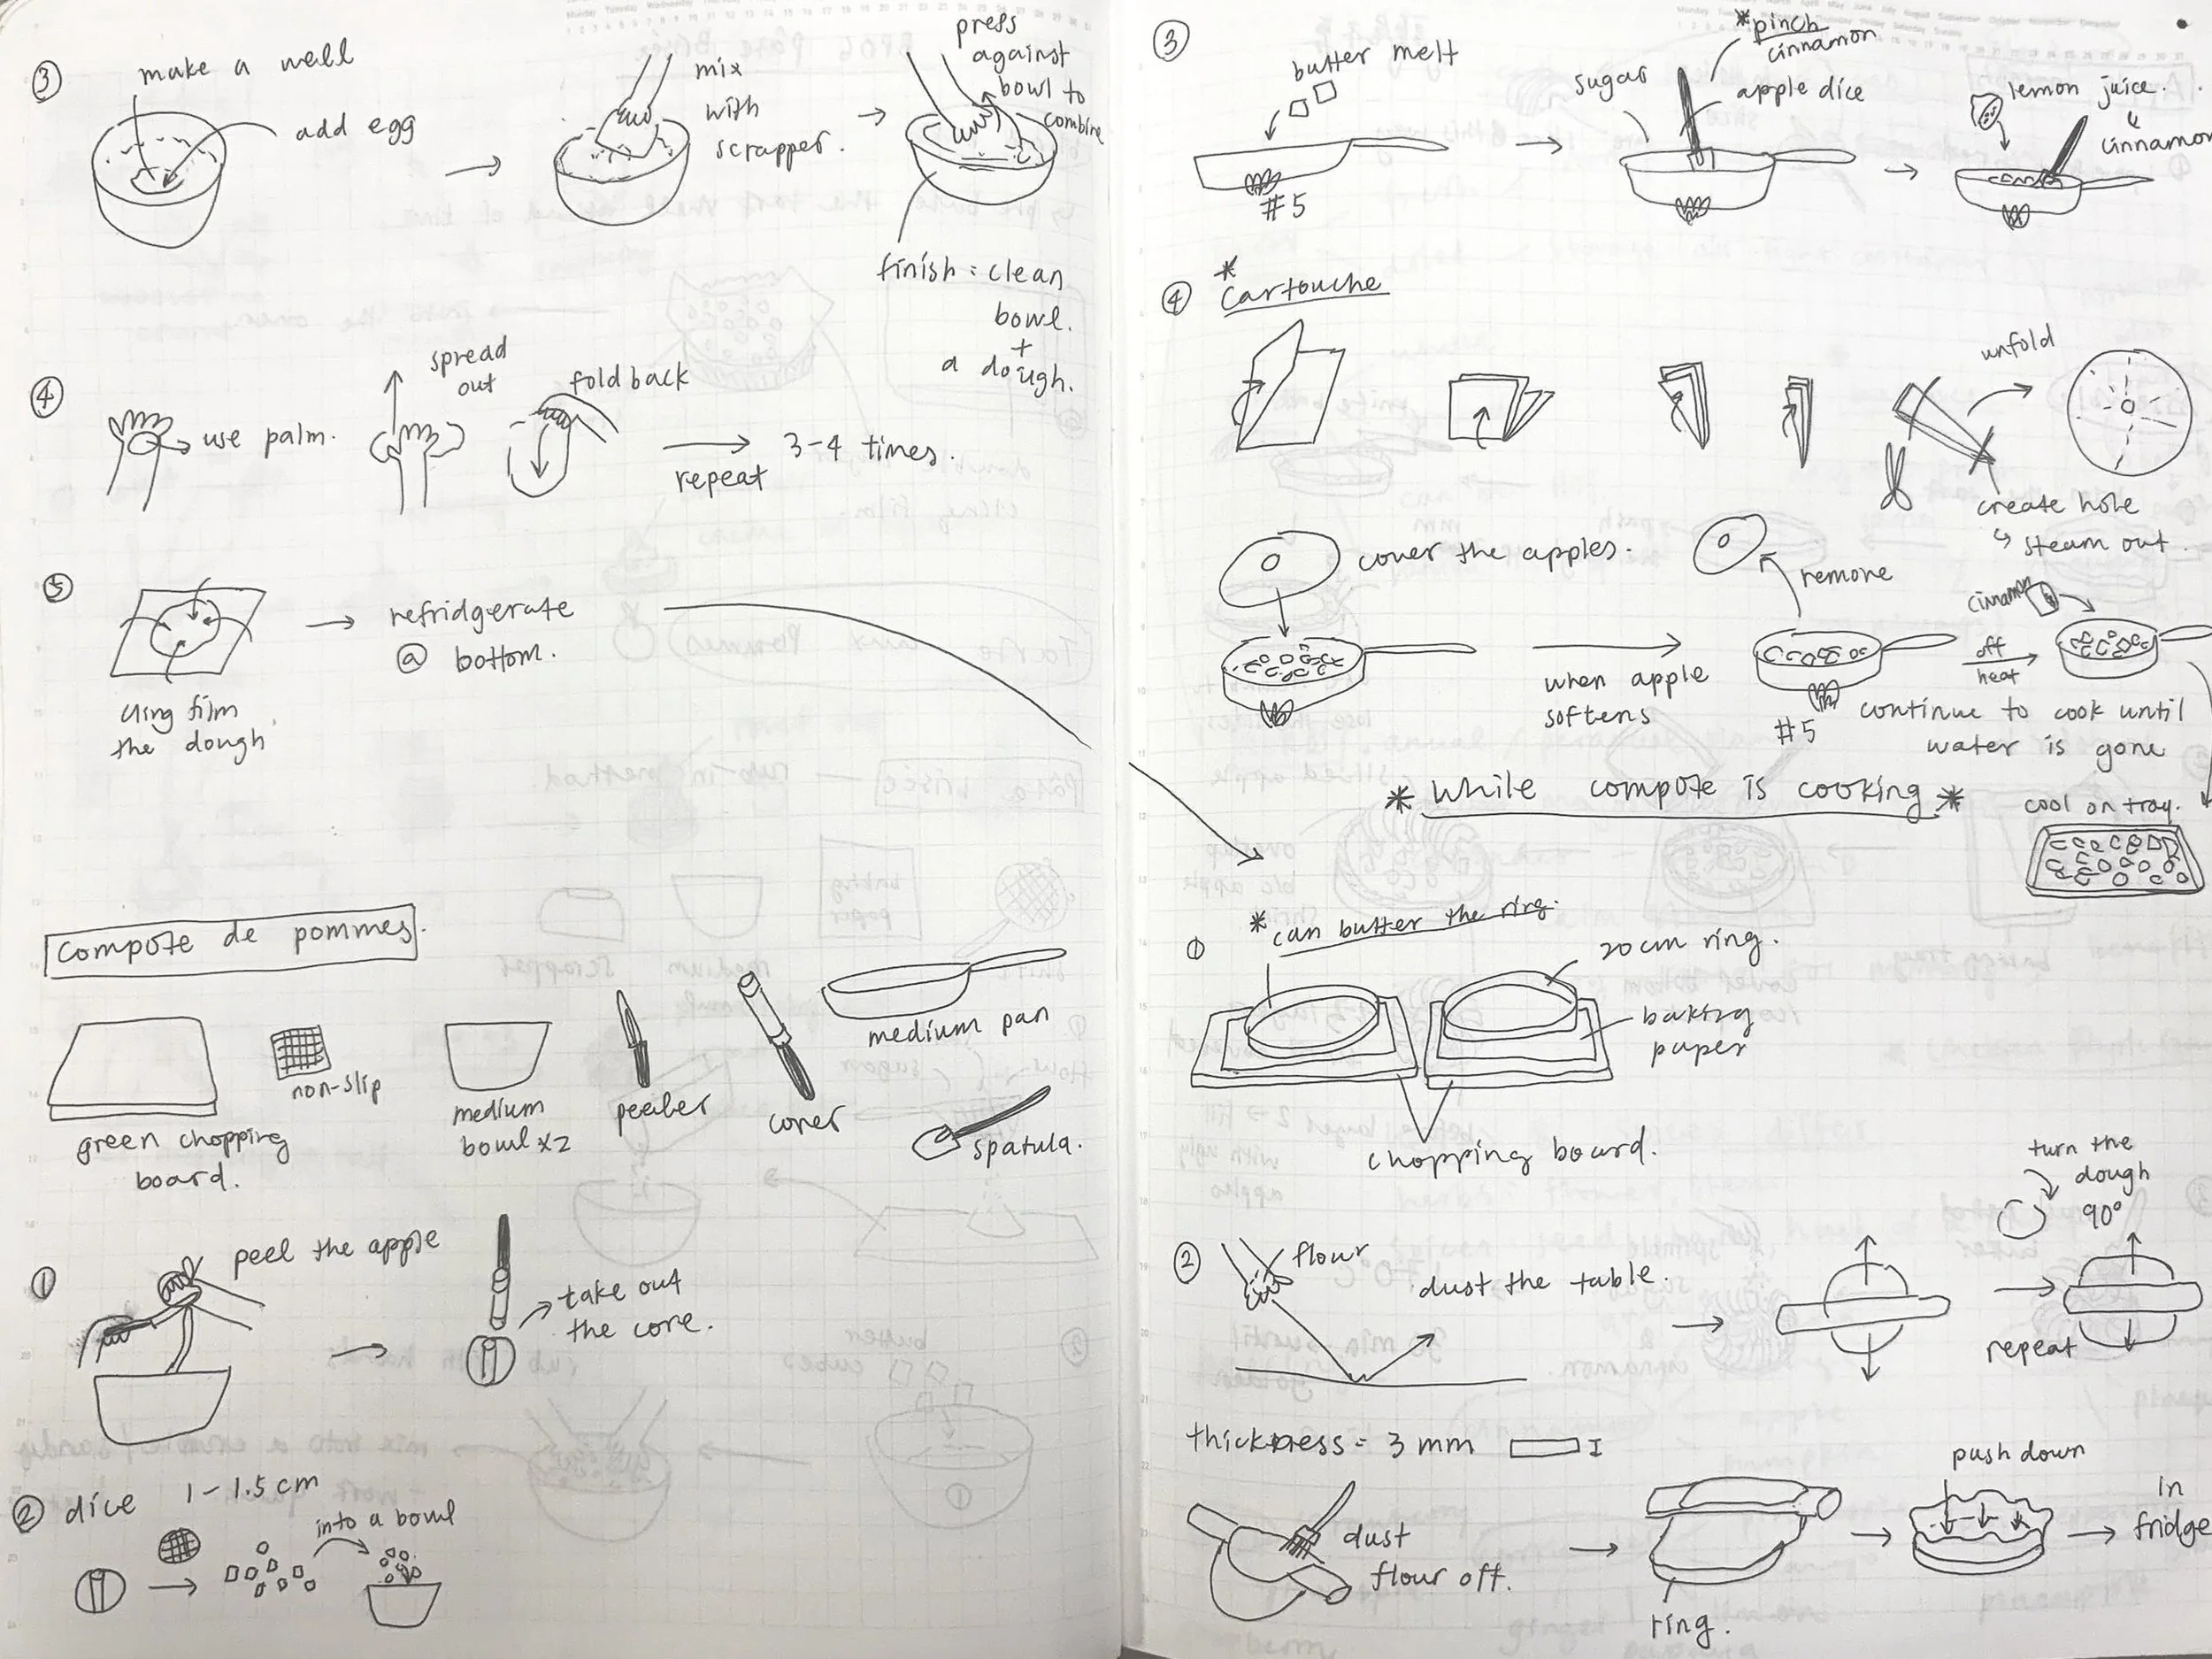 ③
make a well
add egg
mix
with
scrapper.
press
against
bowl to
combine
finish : clean
bowl.
+
a dough.
④
use palm.
spread
out
fold back
repeat
3-4 times.
⑤
cling film
the dough
refridgerate
@ bottom.
compote de pommes.
green chopping
board.
non-slip
medium
bowl x2
peeler
corer
medium pan
spatula.
①
peel the apple
take out
the core.
② dice 1 - 1.5 cm
into a bowl
③
butter melt
#5
sugar
*pinch
cinnamon
apple dice
lemon juice.
&
cinnamon
④ *cartouche
unfold
create hole
↳ steam out.
cover the apples.
when apple
softens
remove
#5
continue to cook until
water is gone
off
heat
cinnamon
cool on tray.
* While compote is cooking *
①
* can butter the ring.
20cm ring.
baking
paper
chopping board.
②
flour
dust the table.
turn the
dough
90°
repeat
thickness = 3 mm
dust
flour off.
ring.
push down
in
fridge